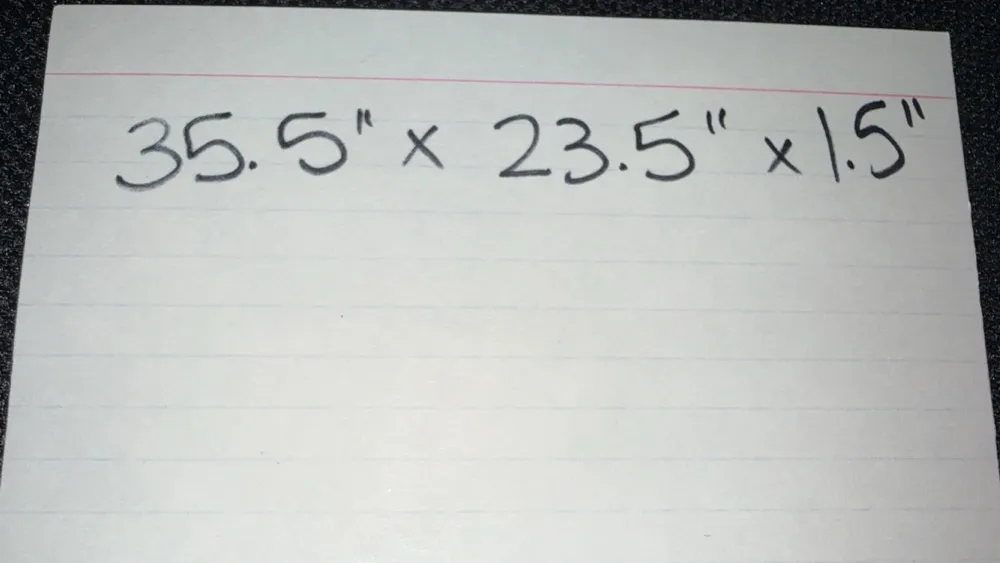 35.5" x 23.5" x 1.5"